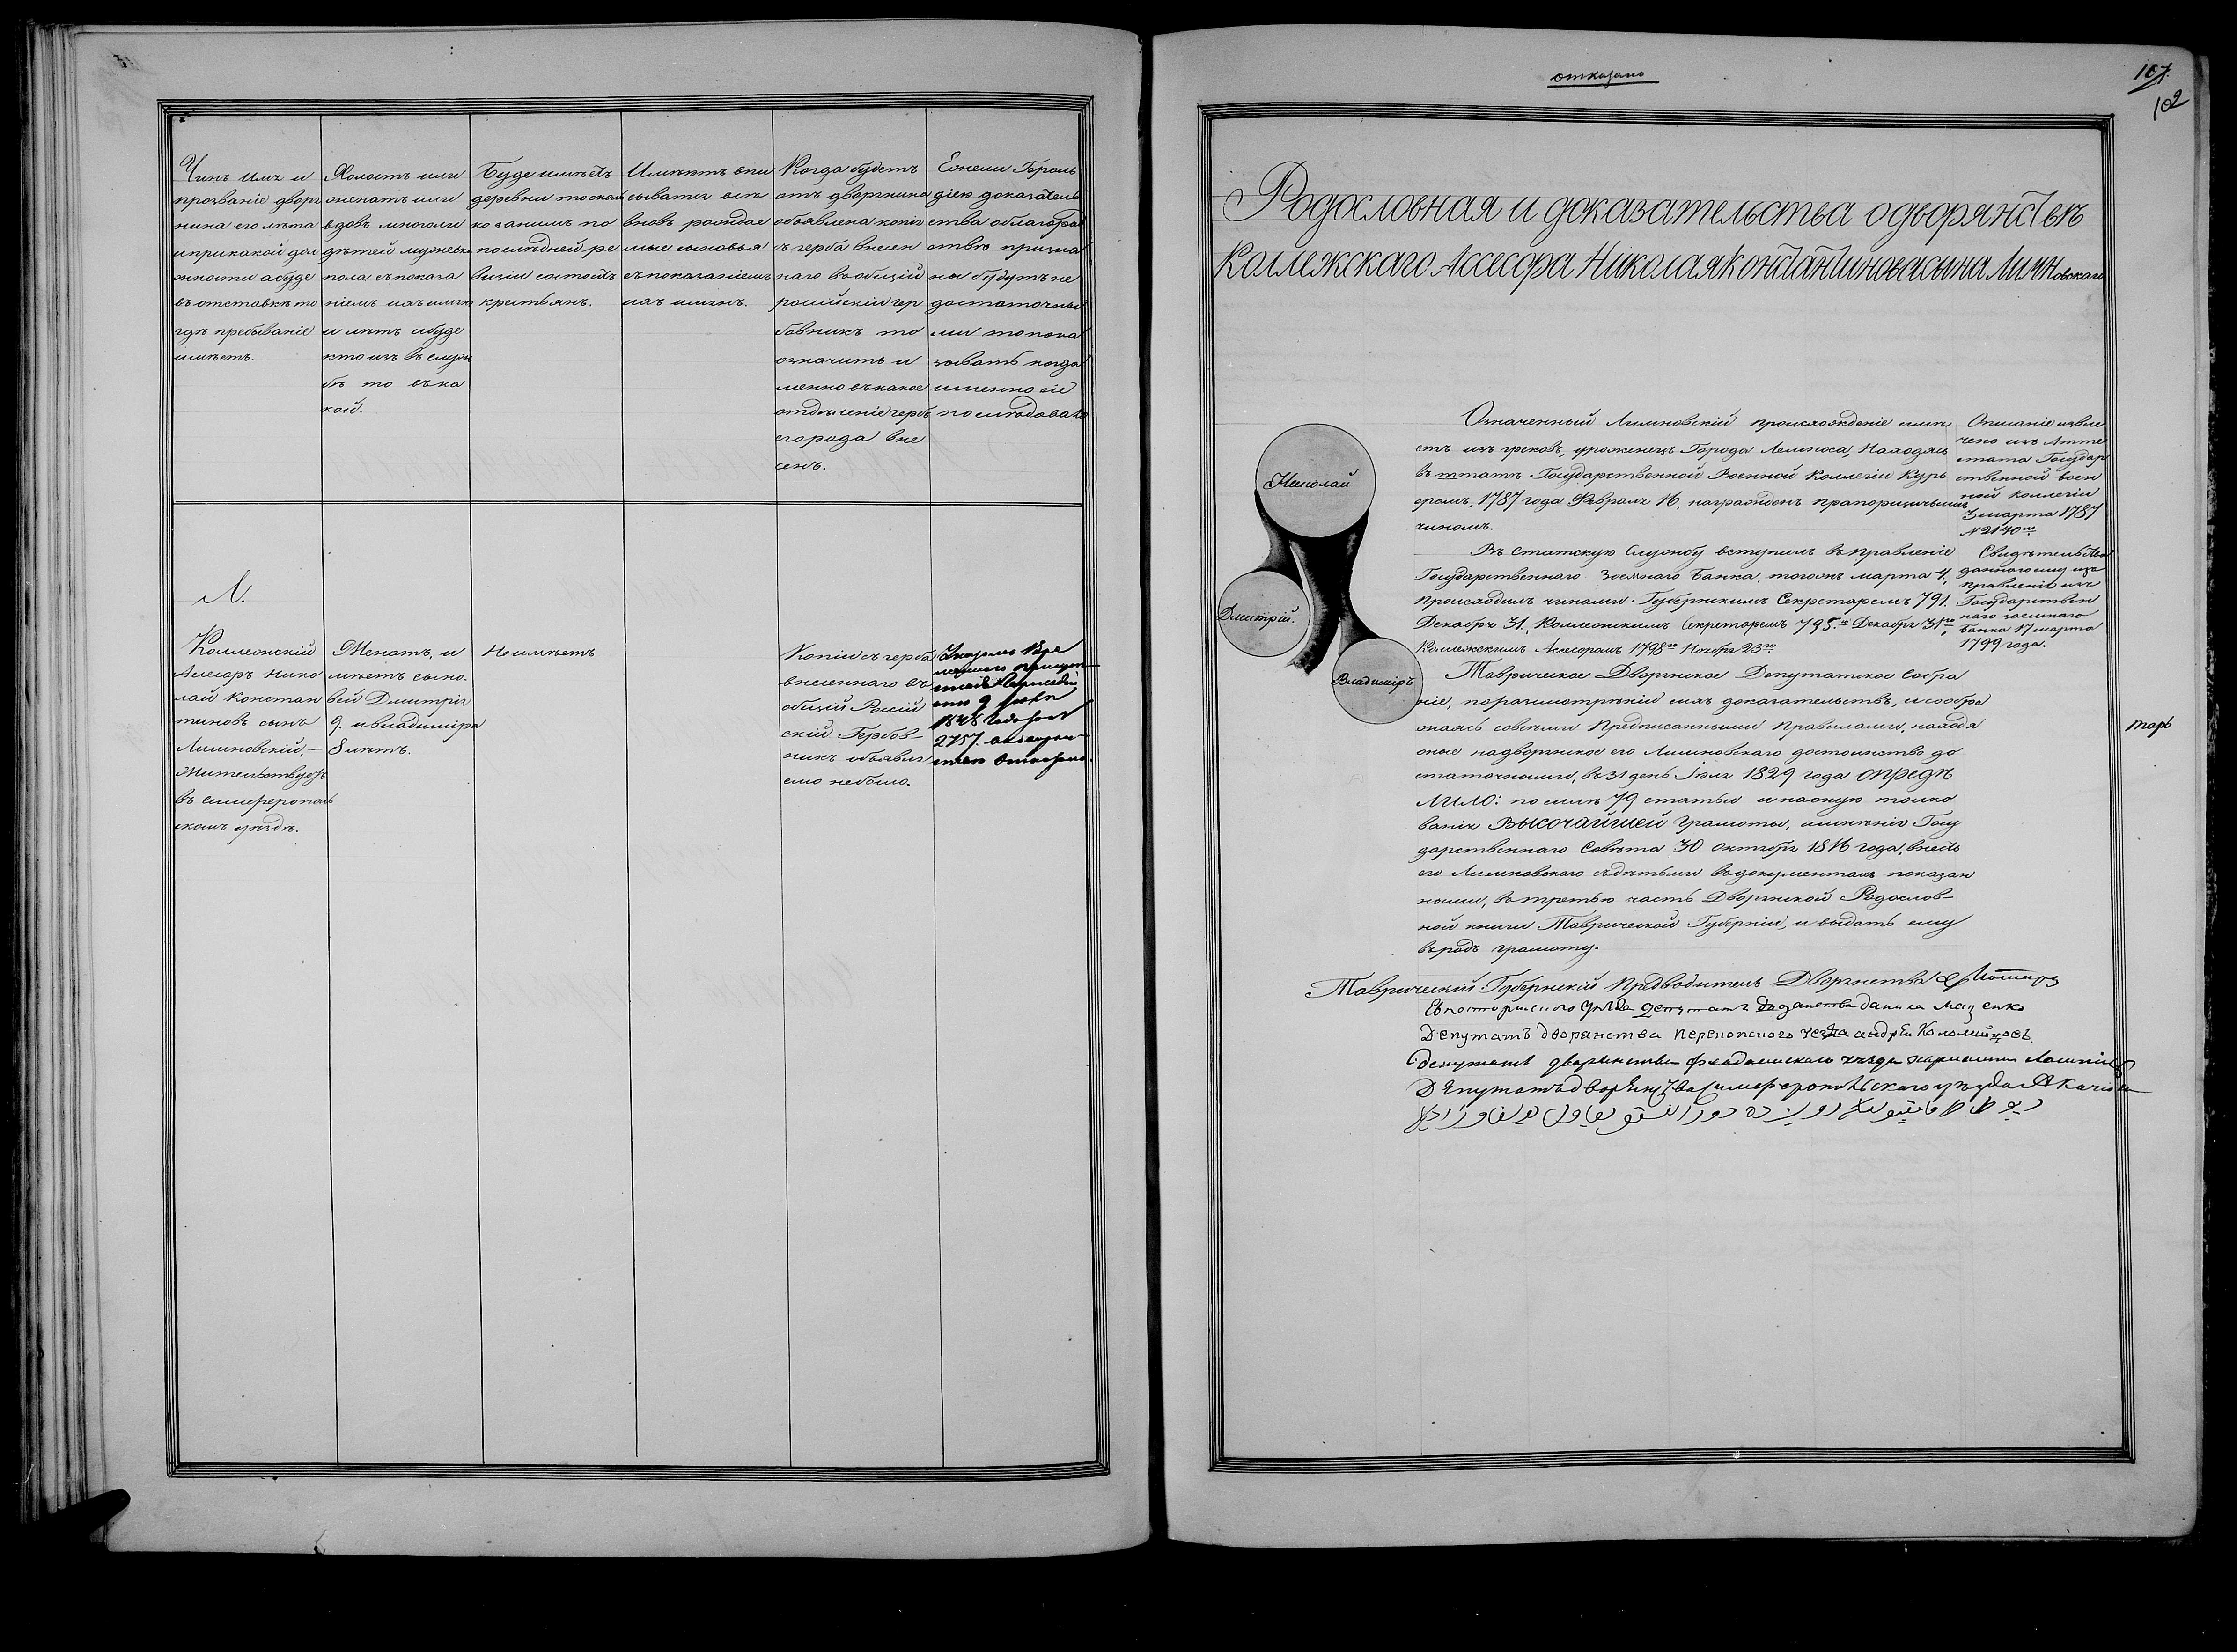 Чинъ имя и
прозваніе дворя
нина его лѣта
и при какой дол
жности а буде
въ отставкѣ то
гдѣ пребываніе
имѣетъ.
Холостъ или
женатъ или
вдовъ много ли
дѣтей мужеска
пола съ показа
ніемъ ихъ имянъ
и лѣтъ и буде
кто изъ въ служ
бѣ то въ ка
кой.
Буде имѣетъ
деревни то скол
ко за нимъ по
послѣдней ре
визіи состоитъ
крестьянъ.
Имѣютъ впи
сыватся всѣ
вновь рождае
мые сыновья
съ показаніемъ
ихъ имянъ.
Когда будетъ
отъ дворянина
объявлена копія
съ герба внесен
наго въ общій
россійскій гер
бовникъ то
означить и
менно въ какое
отдѣленіе гербъ
его рода вне
сенъ.
Ежели Героль
діею доказатель
ства о благород
ствѣ призна
ны будутъ не
достаточны
ми то пока
зывать когда
именно сіе
послѣдовало
Л.
Коллежскій
Ассесаръ Нико
лай Констан
тиновъ сынъ
Лимновскій, —
Жительствуетъ
въ симферополь
скомъ уѣздѣ.
Женатъ, и
имѣетъ сыно-
вей Дмитрія
9. и владиміра
8 лѣтъ.
Не имѣетъ
Копіи съ герба
внесеннаго въ
общій Россій
скій Гербов-
никъ объявля
емо небыло.
Указомъ Вре
меннаго присут-
ствія Герольдіи
отъ 9 июня
1848 Года за №
2757.
отказано
107.
102
Родословная и доказательства о дворянствѣ
Коллежскаго Ассесора Николая Константинова сына Лимновскаго
Николай
Дмитрій.
Владиміръ
Означенный Лимновскій происхожденіе имѣ
етъ изъ грековъ, уроженецъ Города Лемноса, Находясь
въ штатѣ Государственной Военной Коллегіи Курь
еромъ, 1787 года Февраля 16, награжденъ прапорщичьимъ
чиномъ.
Описаніе извле
чено изъ Атте
стата Государ
ственной воен
ной коллегіи
3 марта 1787
№ 2140го
Въ статскую Службу вступилъ въ правленіе
Государственнаго Заемнаго Банка, тогожъ марта 4,
Происходилъ чинами. Губернскимъ Секретаремъ 791.
Декабря 31, Коллежскимъ Секретаремъ 795.го Декабря 31го,
Коллежскимъ Ассесоромъ 1798го Ноября 23го
Свидѣтельства
даннаго ему изъ
правленія изъ
Государствен
наго заемнаго
Банка 17 марта
1799 года.
Таврическое Дворянское Депутатское Собра
ніе, по разсмотрѣніи сихъ доказательствъ, и сообра
жаясь со всѣми Предписанными Правилами, находя
оные на дворянское его Лимновскаго достоинство до
статочными, въ 31 день Іюля 1829 года ОПРЕДѢ
ЛИЛО: по силѣ 79 статьи и на оную толко
ванія ВЫСОЧАЙШЕЙ Грамоты, и мнѣнія Госу
дарственнаго Совѣта 30 октября 1816 года, внесть
его Лимновскаго съ дѣтьми въ документахъ показан
ными, въ третью часть Дворянской Родослов-
ной книги Таврической Губерніи, и выдать ему
въ родъ грамоту.
тарь
Таврическій Губернскій Предводитель Дворянства
Евпаторискаго уѣзда Депутатъ Данила Маценко
Депутатъ дворянства Перекопского уезда андрей Коломийцовъ.
депутатъ дворянства Феодосискаго уѣзда
Депутатъ дворянства симферопольскаго уѣзда